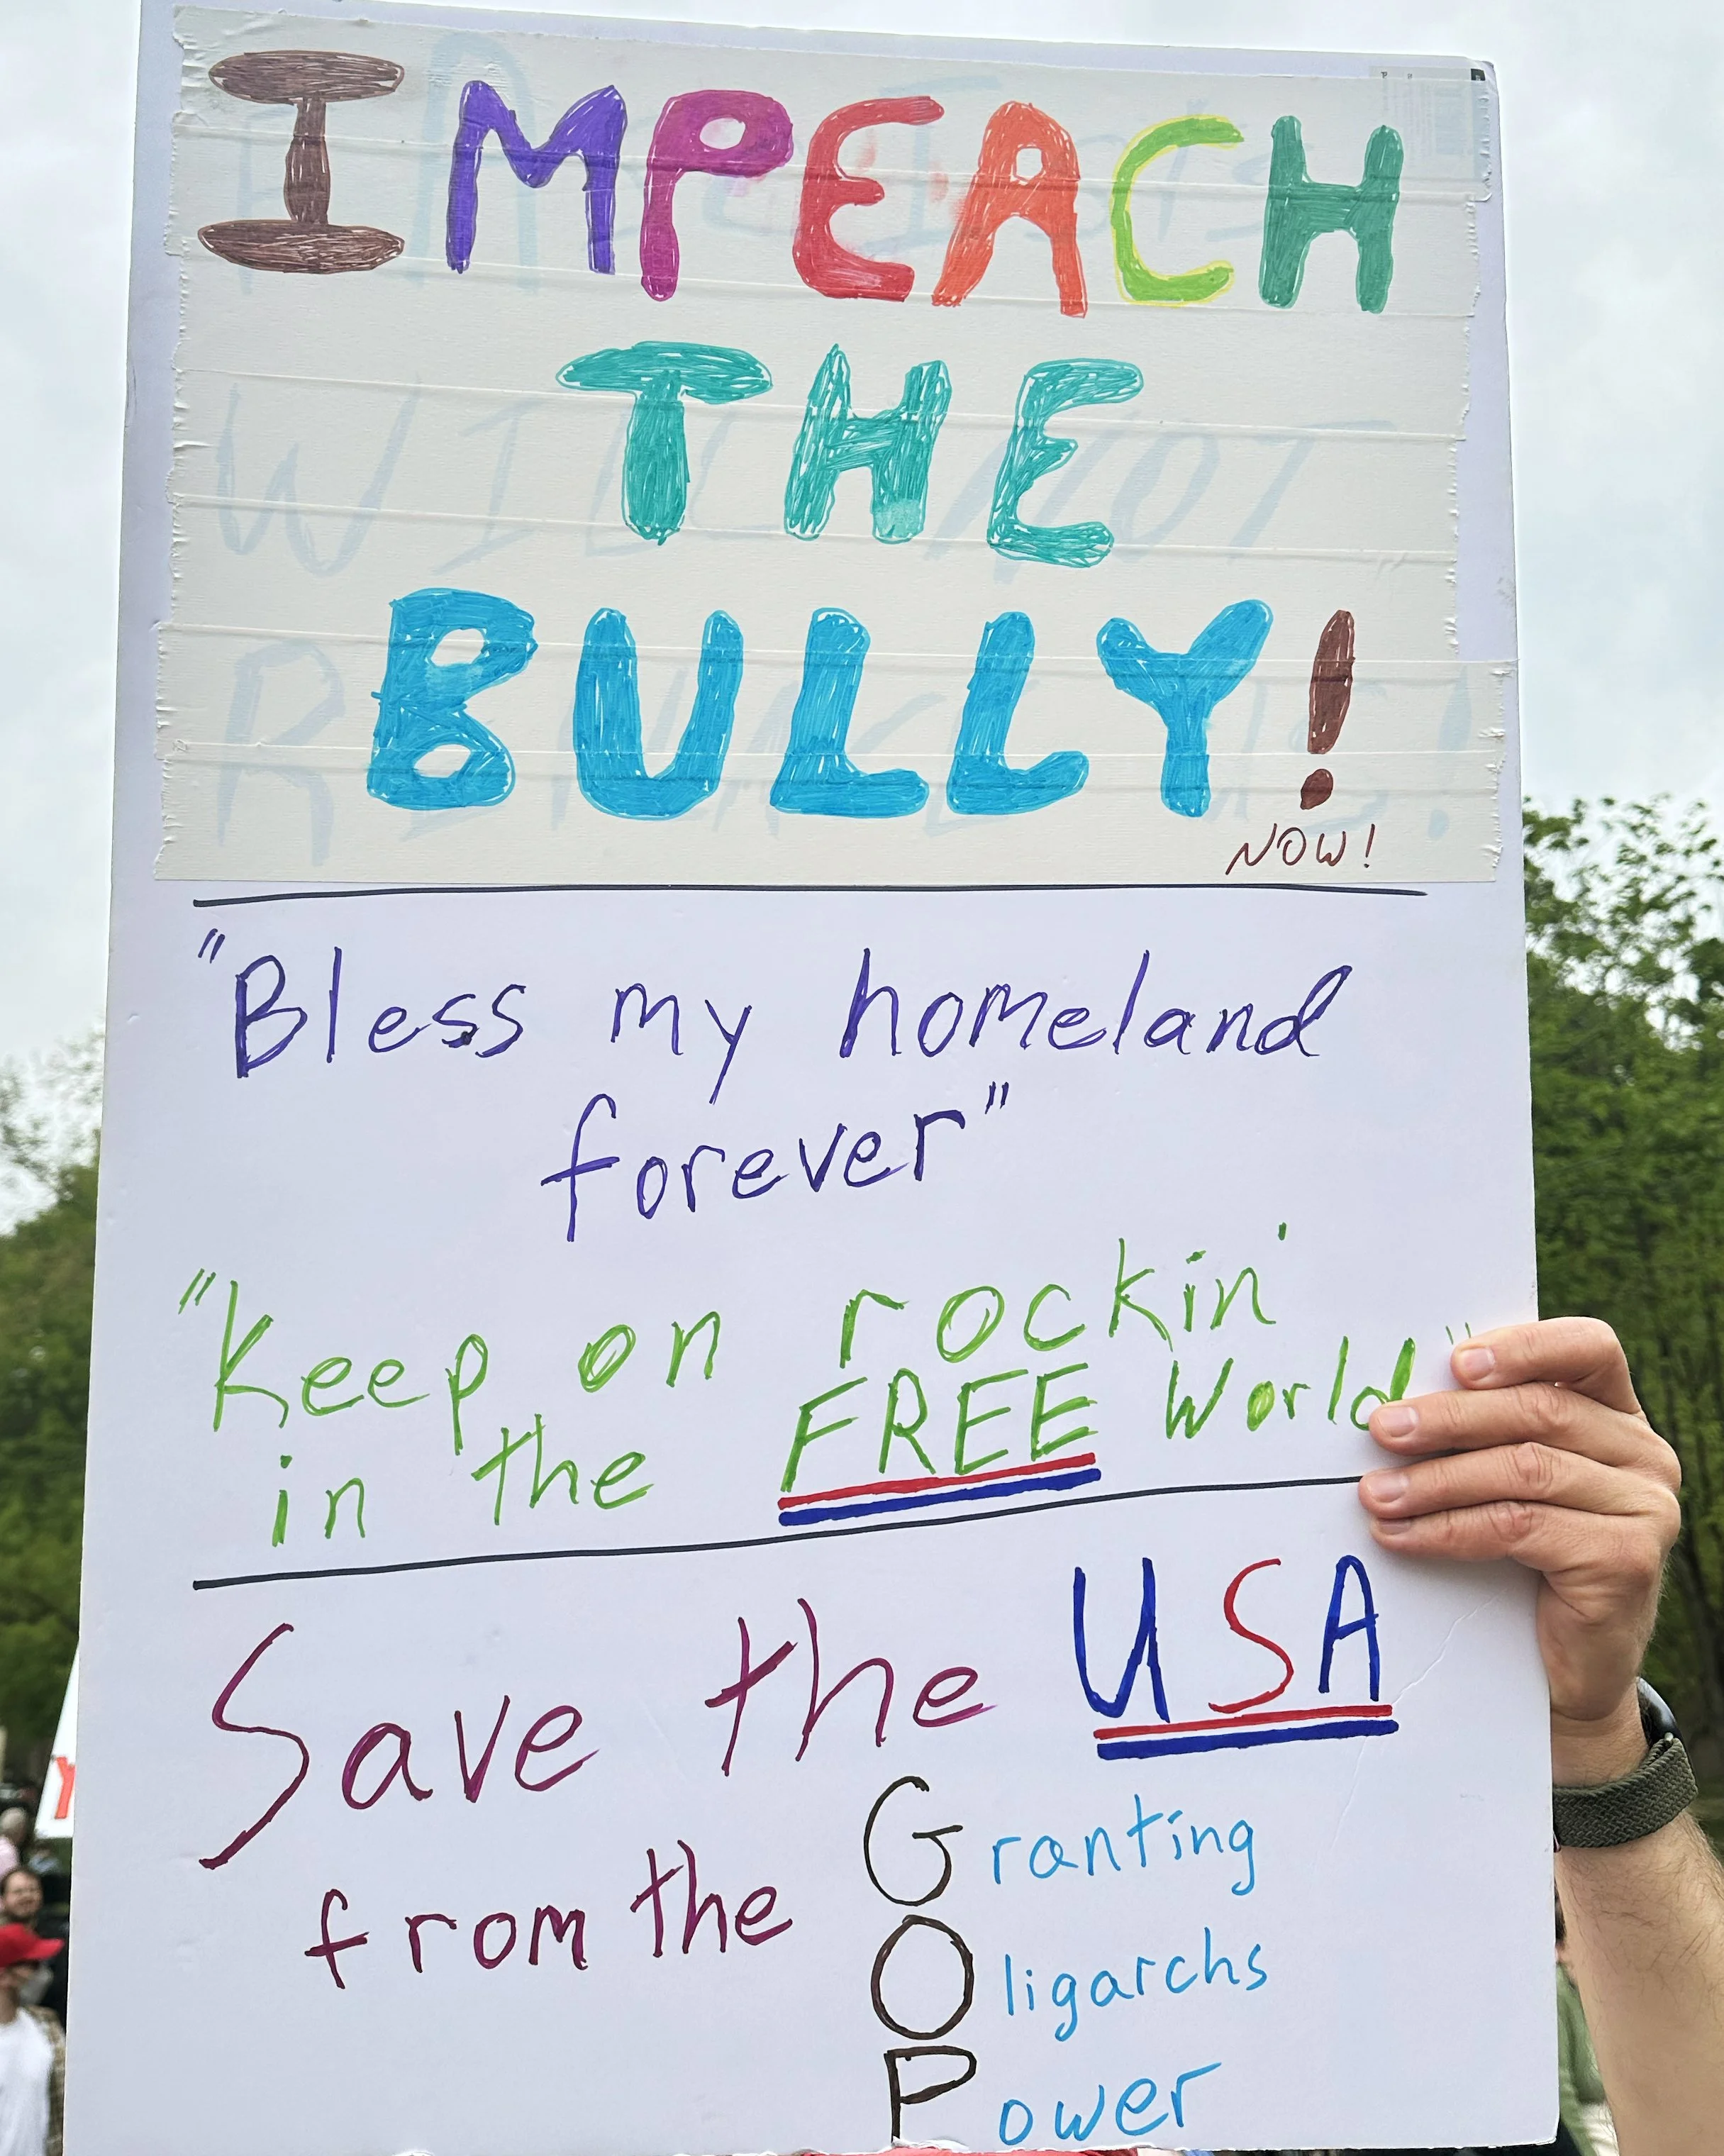 IMPEACH
THE
BULLY!
NOW!
"Bless my homeland
forever"
"Keep on rockin'
in the FREE World"
Save the USA
from the Granting
Oligarchs
Power
WILL NOT
Y